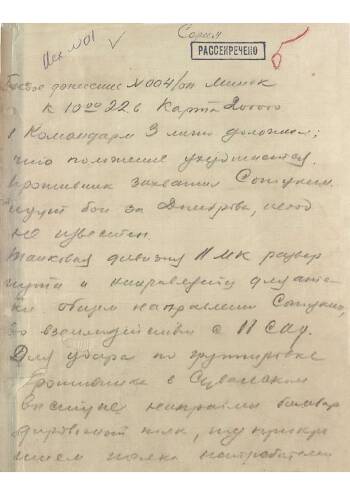 Исх №01
Серия
РАССЕКРЕЧЕНО
Боевое донесение №004/оп Минск
к 10 00 22.6 Карта
1 Командарм 3 лично доложил;
что положение ухудшается.
Противник захватил Сопукин.
идут бои за Домброва, исход
не известен.
Танковая дивизия 11 МК развер
нута и направлена для ата
ки общем направлении Сопукин,
во взаимодействии с 11 сад.
Для удара по группировке
противника в Сувалском
выступе направлен бомбар
дировочный полк,
полка истребителей